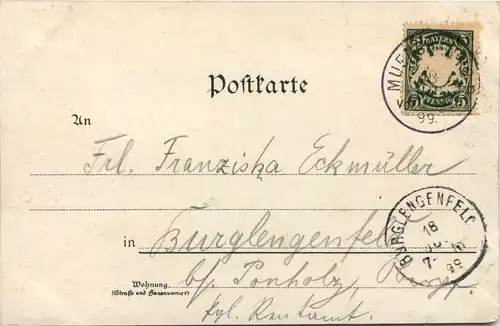 BAYERN
5 PFENNIG 5
MUE
99.
Postkarte
An
Frl. Franziska Eckmüller
in Burglengenfeld
BURGLENGENFELD
18
7-
99
bz. Ponholz,
Wohnung
(Straße und Hausnummer)
kgl. Rentamt.